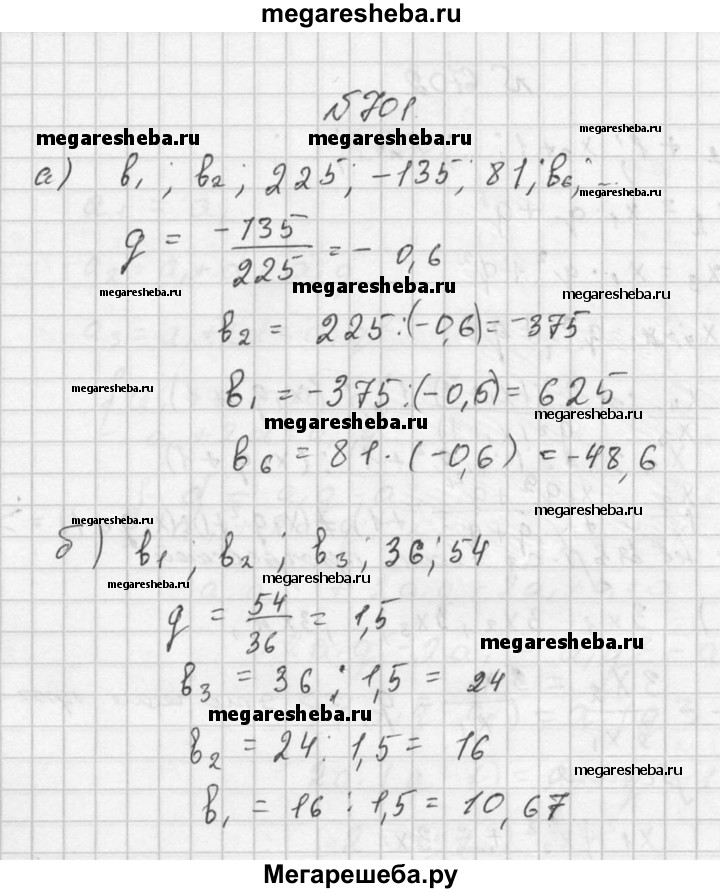 megaresheba.ru
№ 701
megaresheba.ru megaresheba.ru megaresheba.ru
а) в₁ ; в₂ ; 225; -135; 81; в₆; ...
g = -135/225 = - 0,6
megaresheba.ru megaresheba.ru megaresheba.ru
в₂ = 225:(-0,6)= -375
megaresheba.ru
в₁ = -375:(-0,6)= 625
megaresheba.ru megaresheba.ru
в₆ = 81 · (-0,6) = -48,6
megaresheba.ru megaresheba.ru
б) в₁ ; в₂ ; в₃ ; 36; 54
megaresheba.ru megaresheba.ru megaresheba.ru
g = 54/36 = 1,5
megaresheba.ru
в₃ = 36 : 1,5 = 24
megaresheba.ru
в₂ = 24 : 1,5 = 16
megaresheba.ru
в₁ = 16 : 1,5 = 10,67
Мегарешеба.ру